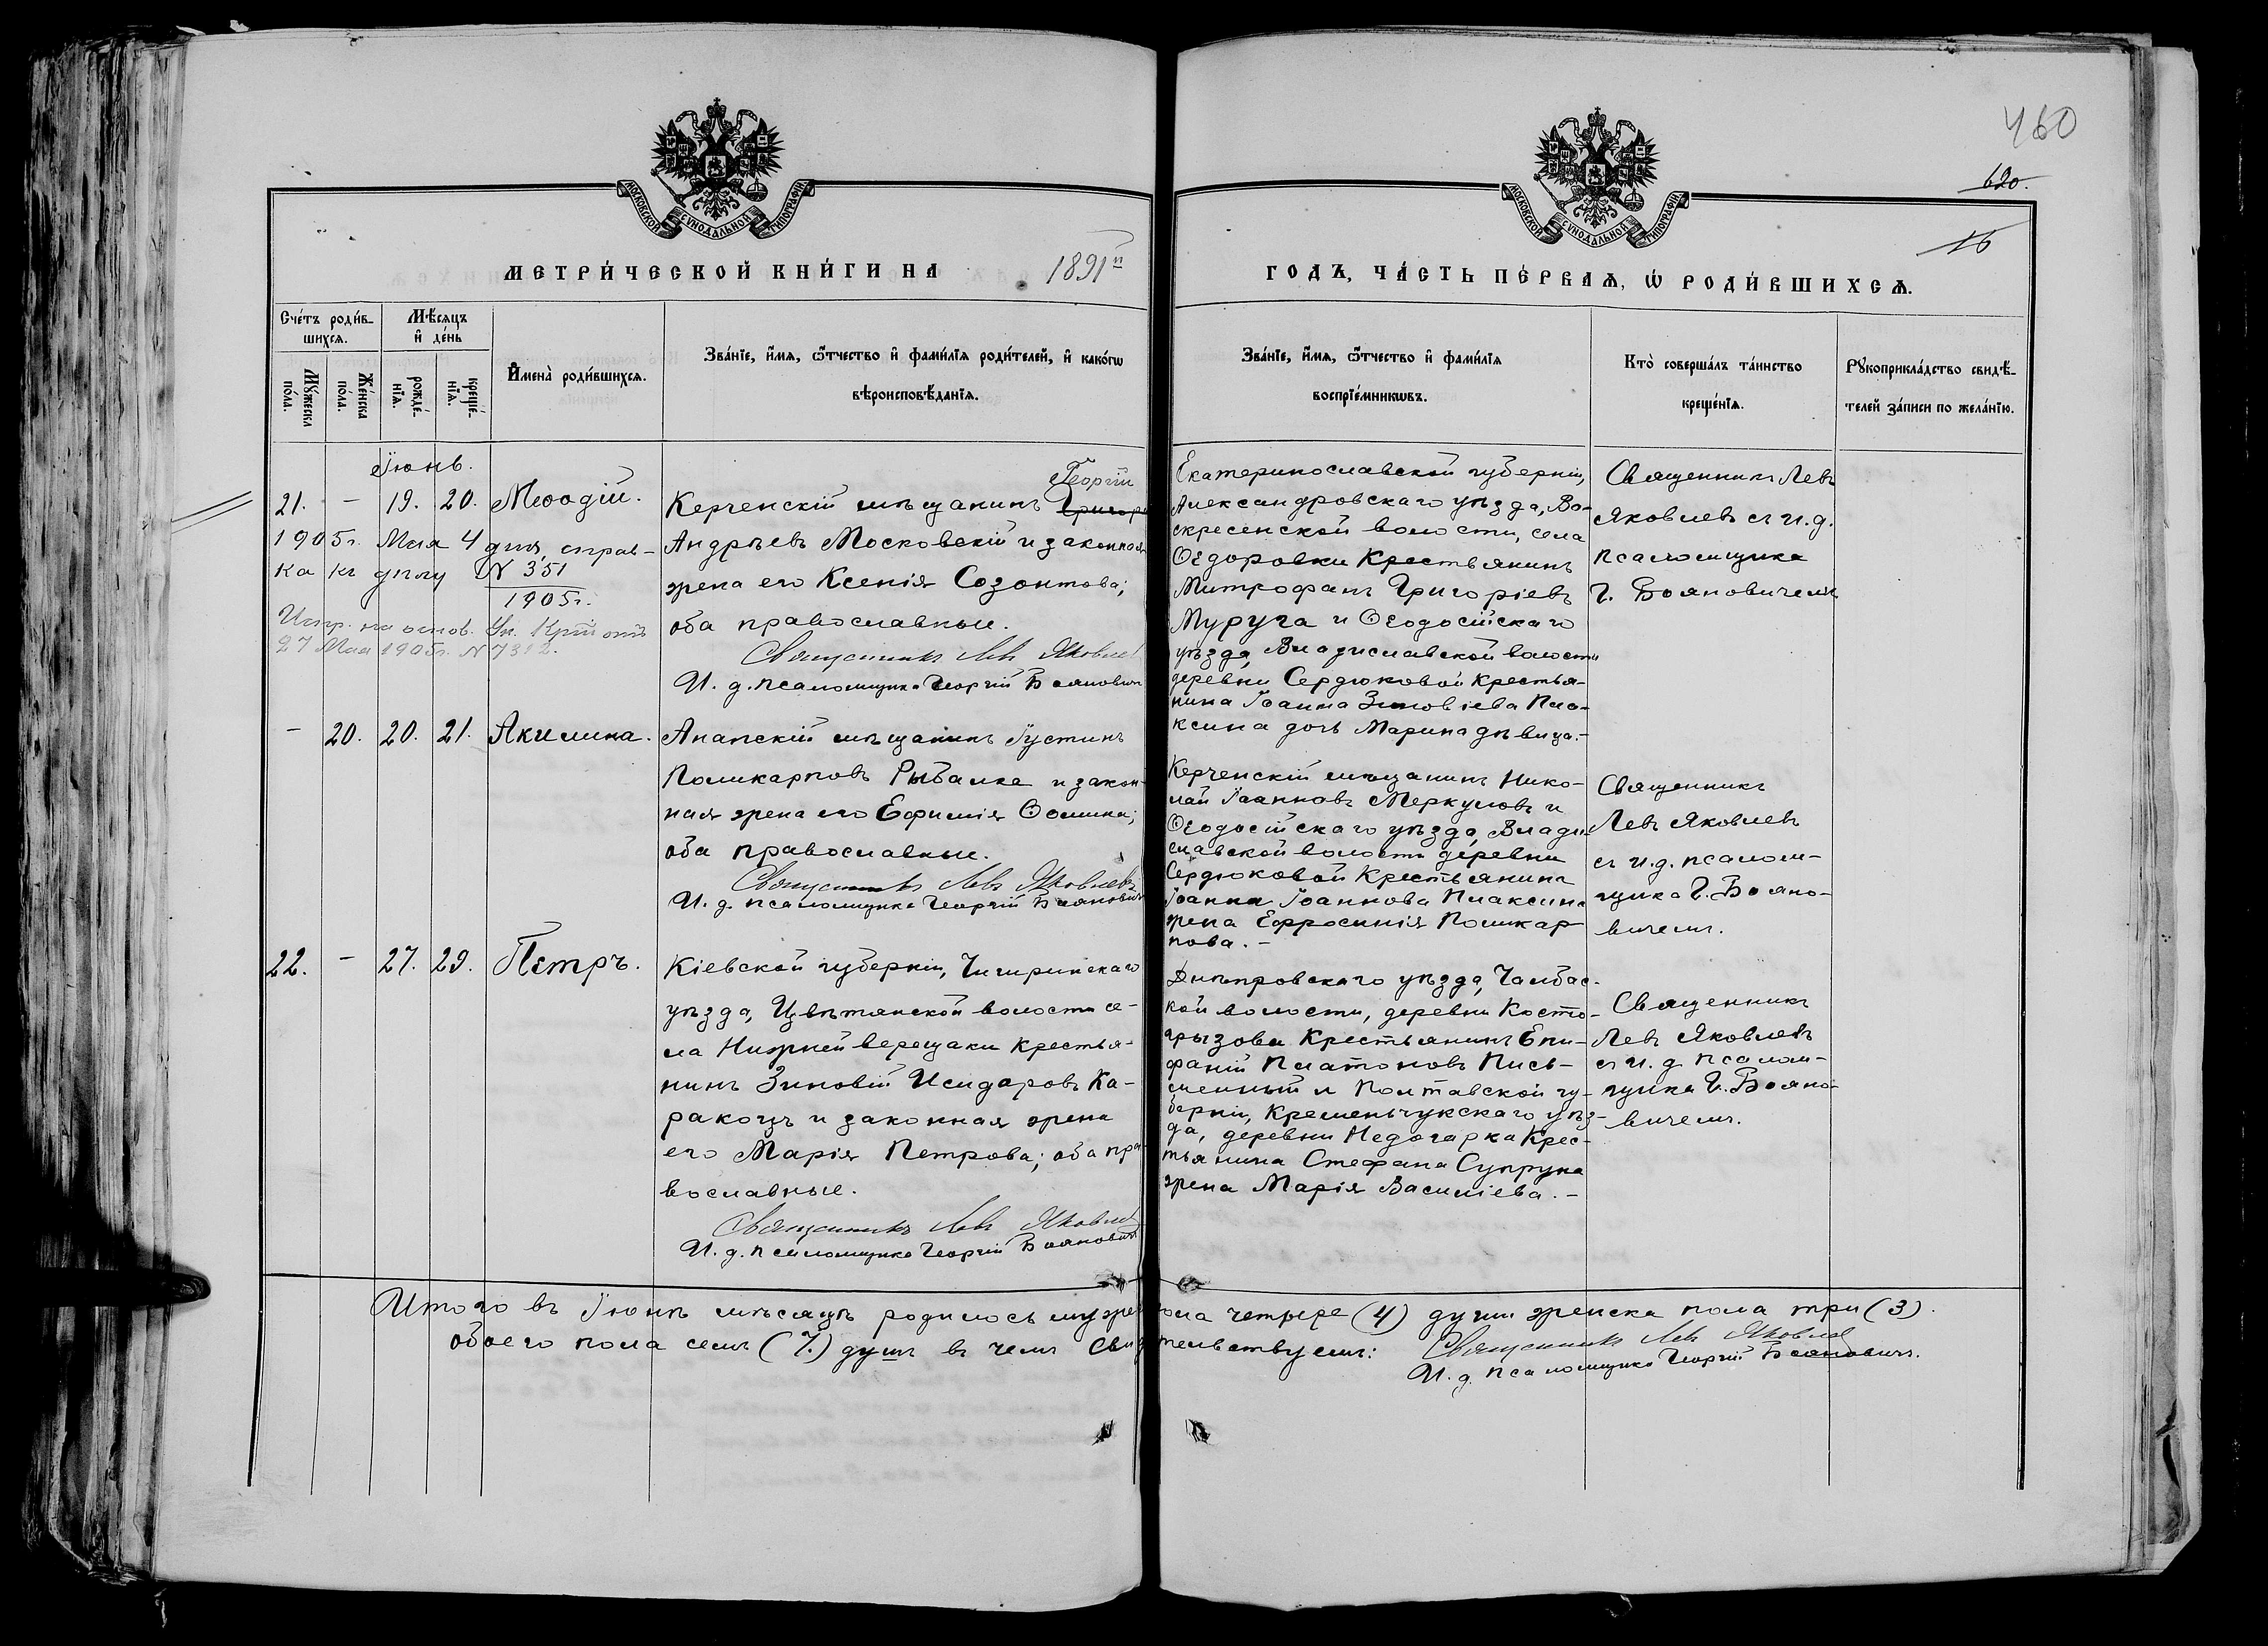 460
620.
16
МОСКОВСКОЙ СУНОДАЛЬНОЙ ТИПОГРАФІИ
МОСКОВСКОЙ СУНОДАЛЬНОЙ ТИПОГРАФІИ
МЕТРИ́ЧЕСКОЙ КНИ́ГИ НА 1891й
ГОДЪ, ЧА́СТЬ ПЕ́РВАѦ, Ѡ РОДИ́ВШИХСѦ.
Сче́тъ роди́в-
шихсѧ.
Мѣ́сѧцъ
и҆ де́нь
Мꙋ́жеска
по́ла.
Же́нска
по́ла.
рожде́-
нїѧ.
креще́-
нїѧ.
И҆мена̀ роди́вшихсѧ.
Зва́нїе, и҆́мѧ, ѻ҆́тчество и҆ фами́лїѧ роди́телей, и҆ како́гѡ
вѣроисповѣ́данїѧ.
Зва́нїе, и҆́мѧ, ѻ҆́тчество и҆ фами́лїѧ
воспрїе́мникѡвъ.
Кто̀ соверша́лъ та́инство
креще́нїѧ.
Рꙋкоприкла́дство свидѣ́-
телей за́писи по жела́нїю.
Іюнь.
21. – 19. 20. Меѳодій.
1905г. Мая 4 дня, справ-
ка къ дѣлу № 351
1905г.
Испр. на основ. Ук. отъ
27 Мая 1905г. № 7312.
Георгій
Керченскій мѣщанинъ Григорі
Андрѣевъ Московскій и законная
жена его Ксенія Созонтова;
оба православные.
Священникъ Левъ Яковлев
И. д. псаломщика Георгій Бояновичъ
Екатеринославской губерніи,
Александровскаго уѣзда, Во-
скресенской волости, села
Ѳедоровки Крестьянинъ
Митрофанъ Григоріевъ
Муруга и Ѳеодосійскаго
уѣзда, Владиславской волости
деревни Сердюковой Крестья-
нина Іоанна Зиновіева Пла-
ксина дочь Марина дѣвица.-
Священникъ Левъ
Яковлевъ съ и. д.
псаломщика
Г. Бояновичемъ
– 20. 20. 21. Акилина.
Анапскій мѣщанинъ Іустинъ
Поликарповъ Рыбалка и закон-
ная жена его Ефимія Ѳомина;
оба православные.
Священникъ Левъ Яковлевъ
И. д. псаломщика Георгій Бояновичъ
Керченскій мѣщанинъ Нико-
лай Іоанновъ Меркуловъ и
Ѳеодосійскаго уѣзда, Влади-
славской волости деревни
Сердюковой Крестьянина
Іоанна Іоаннова Плаксина
жена Евфросинія Поликар
пова. –
Священникъ
Левъ Яковлевъ
съ и. д. псалом-
щика Г. Бояно-
вичемъ.
22. – 27. 29. Петръ.
Кіевской губерніи, Чигиринскаго
уѣзда, Цвѣтянской волости се-
ла Нижней верещаки Крестья-
нинъ Зиновій Исидоровъ Ка-
ракоцъ и законная жена
его Марія Петрова; оба пра
вославные.
Священникъ Левъ Яковлев
И. д. псаломщика Георгій Бояновичъ
Днѣпровскаго уѣзда, Чалбас-
кой волости, деревни Косто-
грызова Крестьянинъ Епи-
фаній Платоновъ Пись-
менный и Полтавской гу-
берніи, Кременчукскаго уѣз-
да, деревни Недогарка Крес-
тьянина Стефана Супруна
жена Марія Василіева. –
Священникъ
Левъ Яковлевъ
съ и. д. псалом-
щика Г. Бояно-
вичемъ.
Итого въ Іюнѣ мѣсяцѣ родилось муже пола четыре (4) души женска пола три (3).
обоего пола семь (7.) душъ въ чемъ свидѣтельствуемъ: Священникъ Левъ Яковлев
И. д. псаломщика Георгій Бояновичъ.